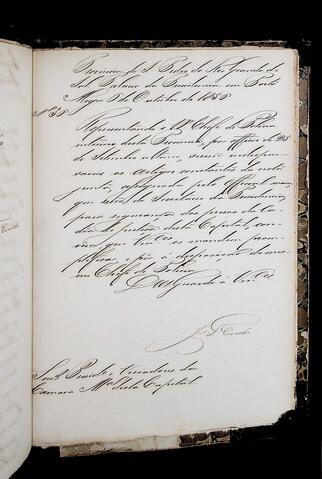 Provincia de S. Pedro do Rio Grande do
Sul Palacio da Presidencia em Porto
Alegre de Outubro de 1858
Nº 38
Representando o Dr Chefe de Policia
interino desta Provincia, por officio de 28
de Setembro ultimo, serem indispen-
saveis os artigos constantes da nota
junta, assignada pelo Official maior
que serve de Secretario da Presidencia,
para segurança dos presos da Ca-
deia de justiça desta Capital, con-
vem que Vmces os mandem promp-
tificar, e pôr á disposição do mes-
mo Chefe de Policia.
Deos Guarde á Vmces
Snres Presidte e Vereadores da
Camara Mal desta Capital